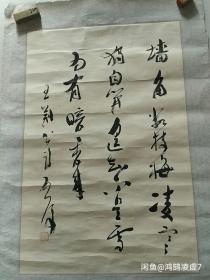 墙角数枝梅凌寒
独自开遥知不是雪
为有暗香来
闲鱼@鸿鹄凌虚7